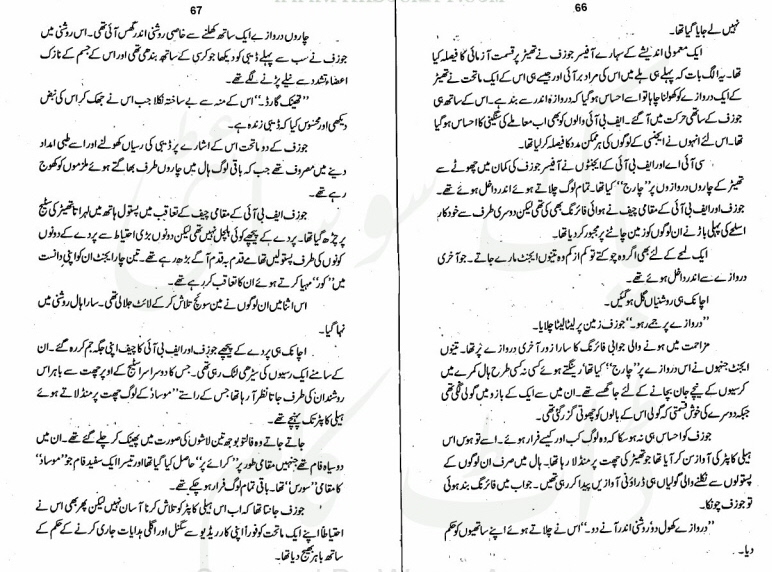 66
نہیں لے جایا گیا تھا۔
ایک معمولی اندیشے کے سہارے آفیسر جوزف نے تھیٹر پر قسمت آزمائی کا فیصلہ کیا
تھا۔ یہ الگ بات کہ پہلے ہی ہلے میں اس کی مراد بر آئی اور جیسے ہی اس کے ایک ماتحت نے تھیٹر
کے ایک دروازے کو کھولنا چاہا تو اسے احساس ہو گیا کہ دروازہ اندر سے بند ہے۔ اس کے ساتھ ہی
جوزف کے ساتھی حرکت میں آ گئے۔ ایف بی آئی والوں کو بھی اب معاملے کی سنگینی کا احساس ہو گیا
تھا۔ اس لئے انہوں نے ایجنسی کے لوگوں کی ہر ممکن مدد کا فیصلہ کر لیا تھا۔
سی آئی اے اور ایف بی آئی کے ایجنٹوں نے آفیسر جوزف کی کمان میں چھوٹے سے
تھیٹر کے چاروں دروازوں پر "چارج" کیا تھا۔ تمام لوگ چلاتے ہوئے اندر داخل ہوئے تھے۔
جوزف اور ایف بی آئی کے مقامی چیف نے ہوائی فائرنگ بھی کی تھی لیکن دوسری طرف سے خودکار
اسلحے کی پہلی باڑ نے ان لوگوں کو زمین چاٹنے پر مجبور کر دیا تھا۔
ایک لمحے کے لئے بھی اگر وہ چوکتے تو کم از کم وہ تینوں ایجنٹ مارے جاتے۔ جو آخری
دروازے سے اندر داخل ہوئے تھے۔
اچانک ہی روشنیاں گل ہو گئیں۔
"دروازے پر جمے رہو۔" جوزف زمین پر لیٹا لیٹا چلایا۔
مزاحمت میں ہونے والی جوابی فائرنگ کا سارا زور آخری دروازے پر تھا۔ تینوں
ایجنٹ جنہوں نے اس دروازے پر "چارج" کیا تھا، رینگتے ہوئے کسی نہ کسی طرح ہال کمرے میں
کرسیوں کے نیچے جان بچانے کے لئے جا گھسے تھے۔ ان میں سے ایک کے بازو میں گولی لگی تھی
جبکہ دوسرے کی خوش قسمتی کہ گولی اس کے بالوں کو چھوتی گزر گئی تھی۔
جوزف کو احساس ہی نہ ہو سکا کہ وہ لوگ کب اور کیسے فرار ہوئے۔ اسے تو ہوش اس
ہیلی کاپٹر کی آواز سن کر آیا تھا جو تھیٹر کی چھت پر منڈلا رہا تھا۔ ہال میں صرف ان لوگوں کے
پستولوں سے نکلنے والی گولیاں ہی ڈراؤنی آوازیں پیدا کر رہی تھیں۔ جواب میں فائرنگ بند ہوئی
تو جوزف چونکا۔
"دروازے کھول دو۔ روشنی اندر آنے دو۔" اس نے چلاتے ہوئے اپنے ساتھیوں کو حکم
دیا۔
67
چاروں دروازے ایک ساتھ کھلنے سے خاصی روشنی اندر گھس آئی تھی۔ اس روشنی میں
جوزف نے سب سے پہلے ڈیٹی کو دیکھا جو کرسی کے ساتھ بندھی تھی اور اس کے جسم کے نازک
اعضاء تشدد سے نیلے پڑنے لگے تھے۔
"تھینک گاڈ۔" اس کے منہ سے بے ساختہ نکلا جب اس نے جھک کر اس کی نبض
دیکھی اور محسوس کیا کہ ڈیٹی زندہ ہے۔
جوزف کے دو ماتحت اس کے اشارے پر ڈیٹی کی رسیاں کھولنے اور اسے طبی امداد
دینے میں مصروف تھے جب کہ باقی لوگ ہال میں چاروں طرف بھاگتے ہوئے ملزموں کو کھوج
رہے تھے۔
جوزف ایف بی آئی کے مقامی چیف کے تعاقب میں پستول ہاتھ میں لہراتا تھیٹر کی سٹیج
پر چڑھ گیا تھا۔ پردے کے پیچھے کوئی ہلچل نہیں تھی لیکن دونوں بڑی احتیاط سے پردے کے دونوں
کونوں کی طرف پستولیں تھامے قدم بہ قدم آگے بڑھ رہے تھے۔ تین چار ایجنٹ ان کو اپنی دانست
میں "کور" مہیا کرتے ہوئے ان کا تعاقب کر رہے تھے۔
اس اثنا میں ان لوگوں نے مین سوئچ تلاش کر کے لائٹ جلا لی تھی۔ سارا ہال روشنی میں
نہا گیا۔
اچانک ہی پردے کے پیچھے جوزف اور ایف بی آئی کا چیف اپنی جگہ جم کر رہ گئے۔ ان
کے سامنے ایک رسیوں کی سیڑھی لٹک رہی تھی۔ جس کا دوسرا سرا سٹیج کے اوپر چھت سے باہر اس
روشندان کی طرف جاتا نظر آ رہا تھا جس کے راستے "موساد" کے لوگ چھت پر منڈلاتے ہوئے
ہیلی کاپٹر تک پہنچے تھے۔
جاتے جاتے وہ فالتو بوجھ تین لاشوں کی صورت میں پھینک کر چلے گئے تھے۔ ان میں
دو سیاہ فام تھے جنہیں مقامی طور پر "کرائے پر" حاصل کیا گیا تھا اور تیسرا ایک سفید فام جو "موساد"
کا مقامی "سورس" تھا۔ باقی تمام لوگ فرار ہو چکے تھے۔
جوزف جانتا تھا کہ اب اس ہیلی کاپٹر کو تلاش کرنا آسان نہیں لیکن پھر بھی اس نے
احتیاطاً اپنے ایک ماتحت کو فوراً اپنی کار ریڈیو سے سگنل اور اگلی ہدایات جاری کرنے کے حکم کے
ساتھ باہر بھیج دیا تھا۔